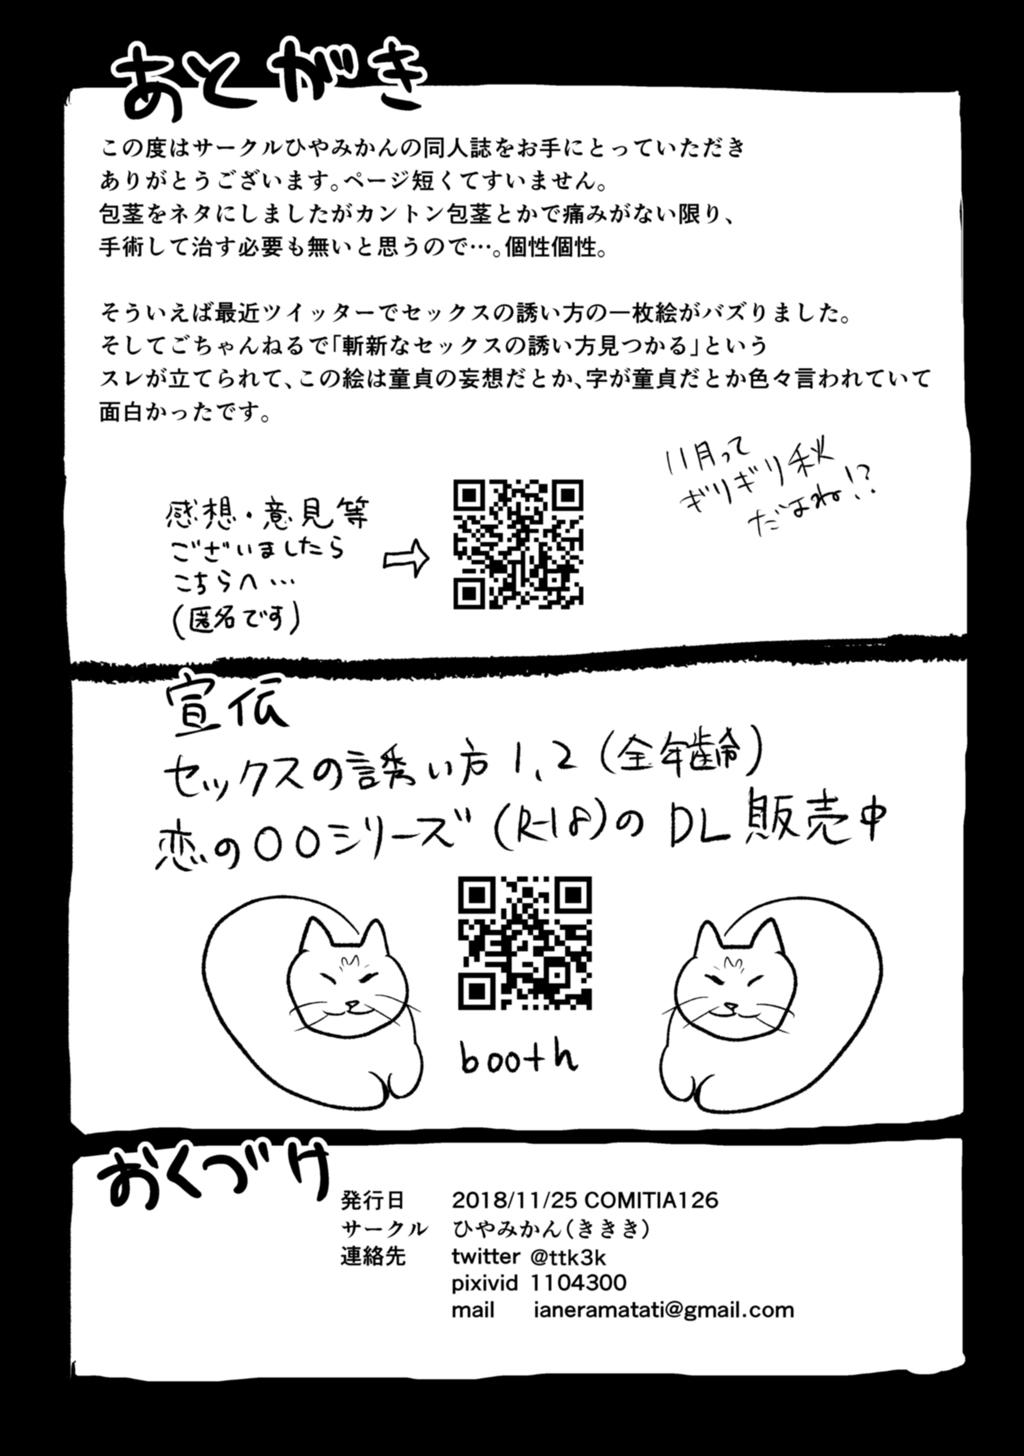 あとがき
この度はサークルひやみかんの同人誌をお手にとっていただき
ありがとうございます。ページ短くてすいません。
包茎をネタにしましたがカントン包茎とかで痛みがない限り、
手術して治す必要も無いと思うので…。個性個性。
そういえば最近ツイッターでセックスの誘い方の一枚絵がバズりました。
そしてごちゃんねるで「斬新なセックスの誘い方見つかる」という
スレが立てられて、この絵は童貞の妄想だとか、字が童貞だとか色々言われていて
面白かったです。
11月って
ギリギリ秋
だよね!?
感想・意見等
ございましたら
こちらへ…
(匿名です)
宣伝
セックスの誘い方1、2(全年齢)
恋の〇〇シリーズ(R-18)のDL販売中
booth
おくづけ
発行日 2018/11/25 COMITIA126
サークル ひやみかん(ききき)
連絡先 twitter @ttk3k
pixivid 1104300
mail ianeramatati@gmail.com